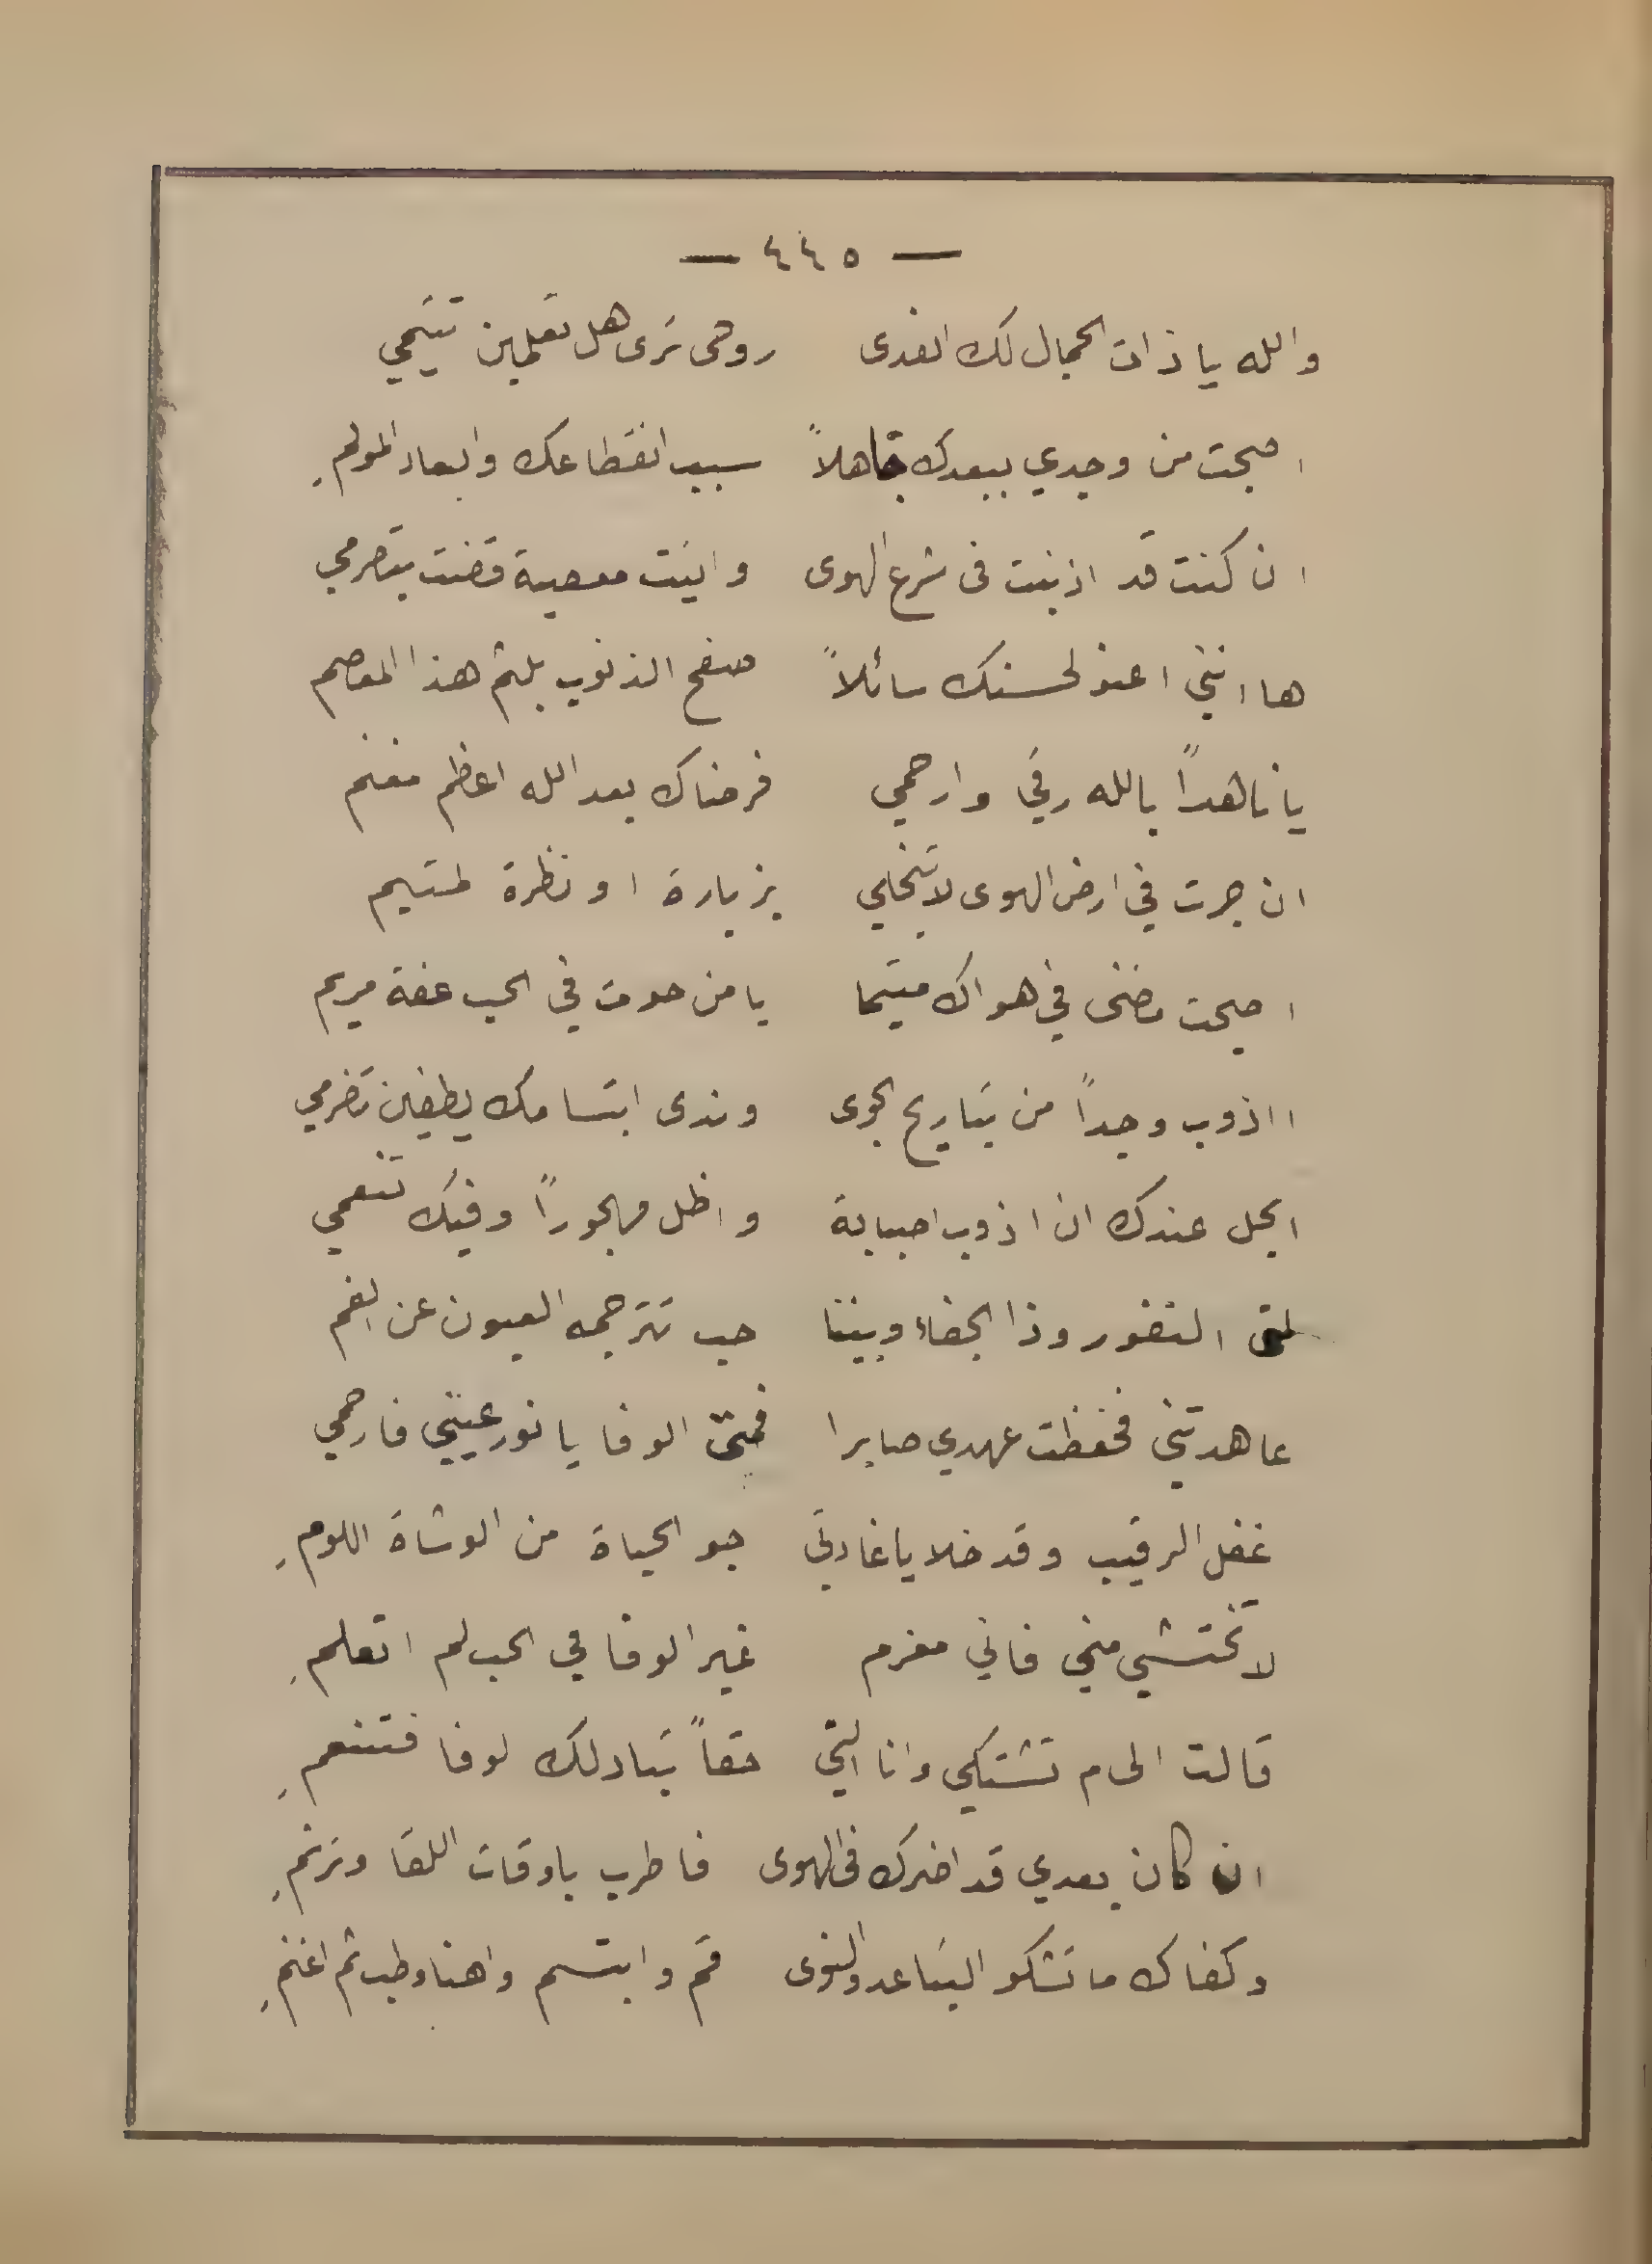 — ٤٤٥ —
والله يا ذات الجمال لك الفدى روحى ترى هل تعلمين تتيمي
اصبحت من وجدي ببعدك جاهلاً سبب انقطاعك وابعاد المولم
ان كنت قد اذنبت فى شرع الهوى واتيت معصية قضت بتصرمي
ها انني اعنو لحسنك سائلاً صفح الذنوب بلثم هذا المعصم
يا ناهداً بالله رقي وارحمي فرضاك بعد الله اعظم مغنم
ان جرت في ارض الهوى لا تبخلي بزيارة او نظرة لمتيم
اصبحت مضنى في هواك متيما يا من حوت في الحب عفة مريم
ااذوب وجداً من تباريح الجوى وندى ابتسامك يطفين تضرمي
ايحل عندك ان اذوب صبابة واظل مهجوراً وفيك تنعمي
لمتى النفور وذا الجفاء وبيننا حب تترجمه العيون عن الفم
عاهدتني فحفظت عهدي صابرا فمتى الوفا يا نور عيني فارحمي
غفل الرقيب وقد خلا يا غادتي جو الحياة من الوشاة اللوم
لا تختشي مني فاني مغرم غير الوفا في الحب لم اتعلم
قالت الى م تشتكي وانا التي حقاً تبادلك لوفا فتنعم
ان كان بعدي قد اضرك فى الهوى فاطرب باوقات اللقا وترنم
وكفاك ما تشكو التباعد والنوى قم وابتسم واهنا وطب ثم اغنم